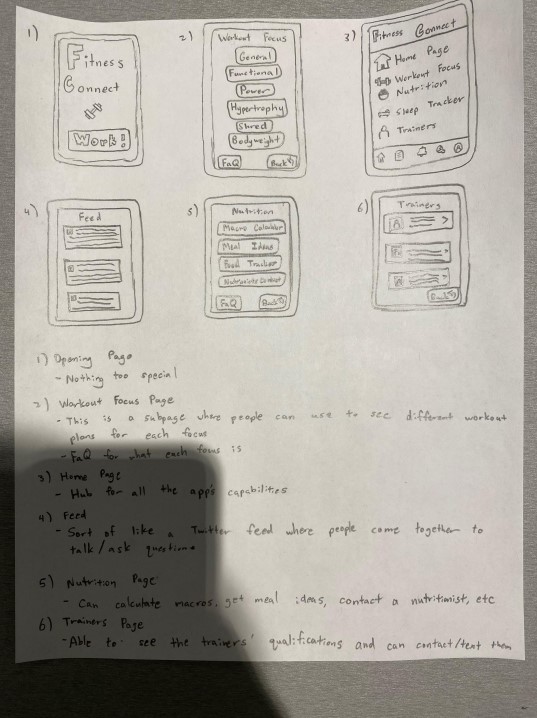 1)
Fitness
Connect
Work!
2)
Workout Focus
General
Functional
Power
Hypertrophy
Shred
Bodyweight
FaQ
Back
3)
Fitness Connect
Home Page
Workout Focus
Nutrition
Sleep Tracker
Trainers
4)
Feed
5)
Nutrition
Macro Calculator
Meal Ideas
Food Tracker
FaQ
Back
6)
Trainers
Back
1) Opening Page
- Nothing too special
2) Workout Focus Page
- This is a subpage where people can use to see different workout
plans for each focus
- FaQ for what each focus is
3) Home Page
- Hub for all the app's capabilities
4) Feed
- Sort of like a Twitter feed where people come together to
talk/ask questions
5) Nutrition Page
- Can calculate macros, get meal ideas, contact a nutritionist, etc
6) Trainers Page
- Able to see the trainers' qualifications and can contact/text them